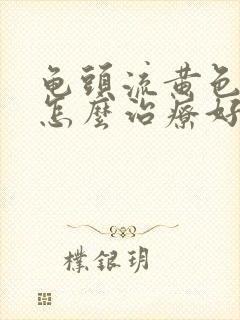 龟頭流黄色
怎麼治療好
樸銀玥